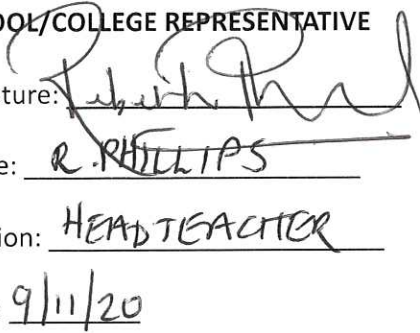 OOL/COLLEGE REPRESENTATIVE
ture:
e: R. PHILLIPS
ion: HEADTEACHER
9/11/20